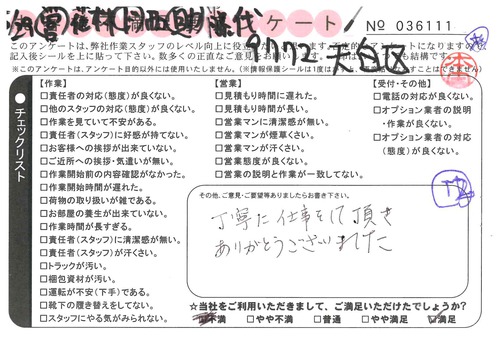 ケート
№ 036111
9/172 天白区
このアンケートは、弊社作業スタッフのレベル向上に役立
記入後シールを上に貼って下さい。数多くの正直なご意見を
※このアンケートは、アンケート目的以外には使用いたしません。(※情報保護シール1度は
チェックリスト
【作業】
□責任者の対応(態度)が良くない。
□他のスタッフの対応(態度)が良くない。
□作業を見ていて不安がある。
□責任者(スタッフ)に好感が持てない。
□お客様への挨拶が出来ていない。
□ご近所への挨拶・気遣いが無い。
□作業開始前の内容確認がなかった。
□作業開始時間が遅れた。
□荷物の取り扱いが雑である。
□お部屋の養生が出来ていない。
□作業時間が長すぎる。
□責任者(スタッフ)に清潔感が無い。
□責任者(スタッフ)が汗くさい。
□トラックが汚い。
□梱包資材が汚い。
□運転が不安(下手)である。
□靴下の履き替えをしてない。
□スタッフにやる気がみられない。
【営業】
□見積もり時間に遅れた。
□見積もり時間が長い。
□営業マンに清潔感が無い。
□営業マンが煙草くさい。
□営業マンが汗くさい。
□営業態度が良くない。
□営業の説明と作業が一致してない。
【受付・その他】
□電話の対応が良くない。
□オプション業者の説明
・作業が良くない。
□オプション業者の対応
(態度)が良くない。
その他、ご意見・ご要望等ありましたらお書き下さい。
丁寧に仕事をして頂き
ありがとうございました
☆当社をご利用いただきまして、ご満足いただけたでしょうか?
□不満 □やや不満 □普通 □やや満足 □満足